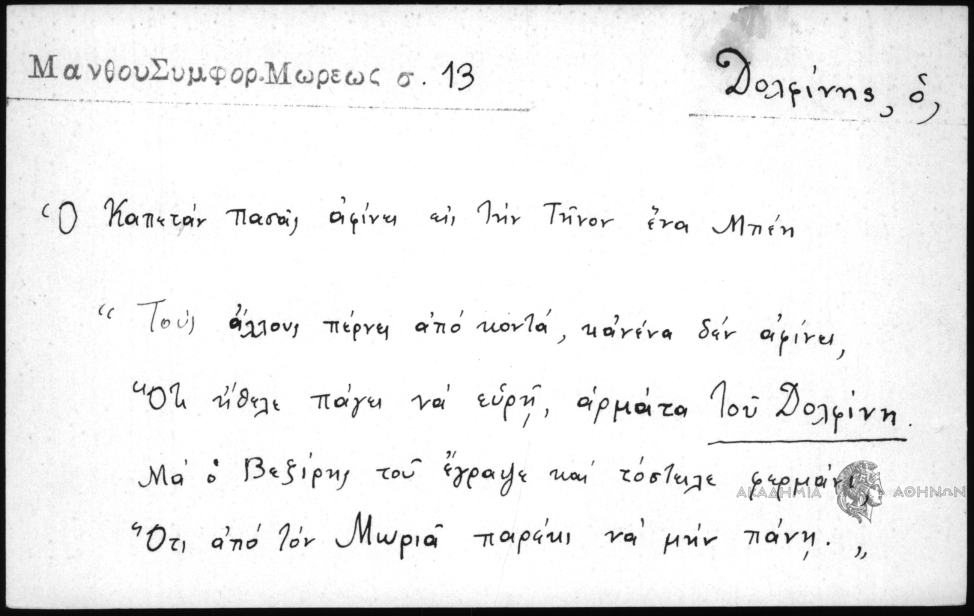 ΜανθουΣυμφορ.Μωρεως σ. 13
Δολφίνης, ὁ,
Ὁ Καπετάν πασᾶς ἀφίνει εἰς τὴν Τῆνον ἕνα Μπέη
“ Τούς ἄλλους πέρνει ἀπό κοντά, κἀνένα δέν ἀφίνει,
Ὅτι ἤθελε πάγει νά εὕρῃ, ἀρμάτα τοῦ Δολφίνη.
Μά ὁ Βεζίρης τοῦ ἔγραψε καί τὄστειλε φερμάνι,
Ὅτι ἀπό τόν Μωριᾶ παρέκι νά μήν πάνῃ. „
ΑΚΑΔΗΜΙΑ ΑΘΗΝΩΝ